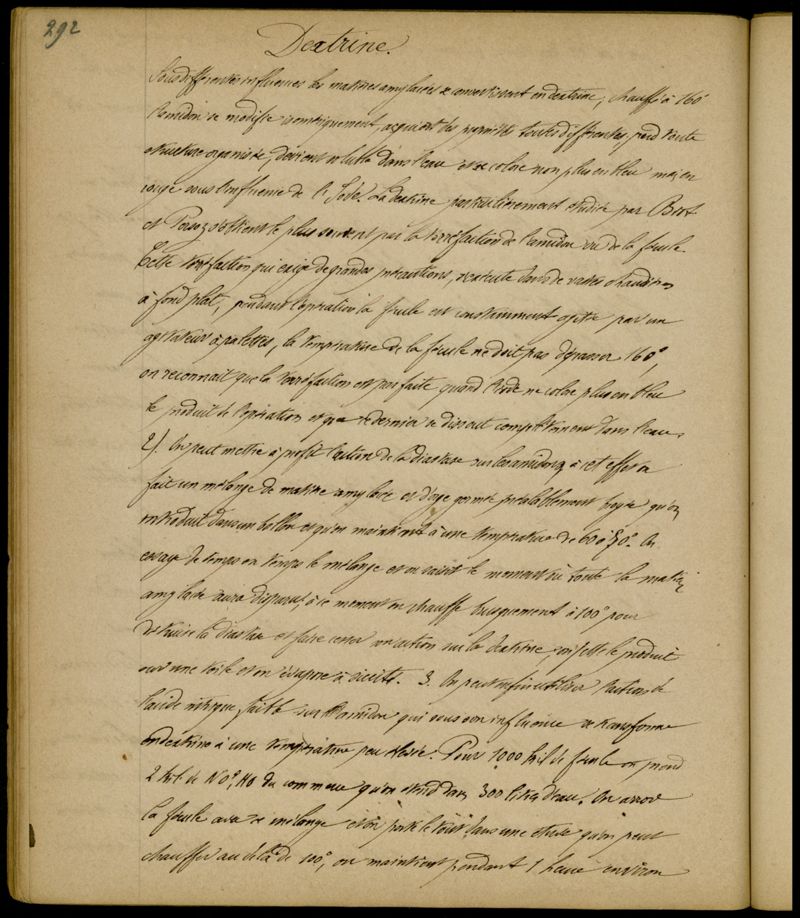 292
Dextrine.
Sous différentes influences les matières amylacées se convertissent en dextrine, chauffé à 160°
l'amidon se modifie isomériquement, acquiert des propriétés toutes différentes, perd toute
structure organisée, devient soluble dans l'eau et se colore non plus en bleu mais en
rouge sous l'influence de l'Iode. La dextrine particulièrement étudiée par Biot
et Persoz s'obtient le plus souvent par la torréfaction de l'amidon ou de la fécule
Cette torréfaction qui exige de grandes précautions, s'exécute dans de vastes chaudières
à fond plat, pendant l'opération la fécule est constamment agitée par un
agitateur à palettes, la température de la fécule ne doit pas dépasser 160°,
on reconnait que la torréfaction est parfaite quand l'iode ne colore plus en bleu
le produit de l'opération et que ce dernier se dissout complètement dans l'eau.
2/. On peut mettre à profit l'action de la diastase sur l'amidon, à cet effet on
fait un mélange de matière amylacée et d'orge germée préalablement broyée qu'on
introduit dans un ballon et qu'on maintient à une température de 60 à 70°. On
essaye de temps en temps le mélange et on saisit le moment où toute la matière
amylacée aura disparu, à ce moment on chauffe brusquement à 100° pour
détruire la diastase et faire cesser son action sur la dextrine, on jette le produit
sur une toile et on évapore à siccité. 3. On peut enfin utiliser l'action de
l'acide nitrique faible sur l'amidon qui sous son influence se transforme
en dextrine à une température peu élevée. Pour 1000 kil de fécule on prend
2 kil de NO⁵, HO du commerce qu'on étend dans 300 litres d'eau. On arrose
la fécule avec ce mélange et on porte le tout dans une étuve qu'on peut
chauffer au delà de 100°, on maintient pendant 1 heure environ